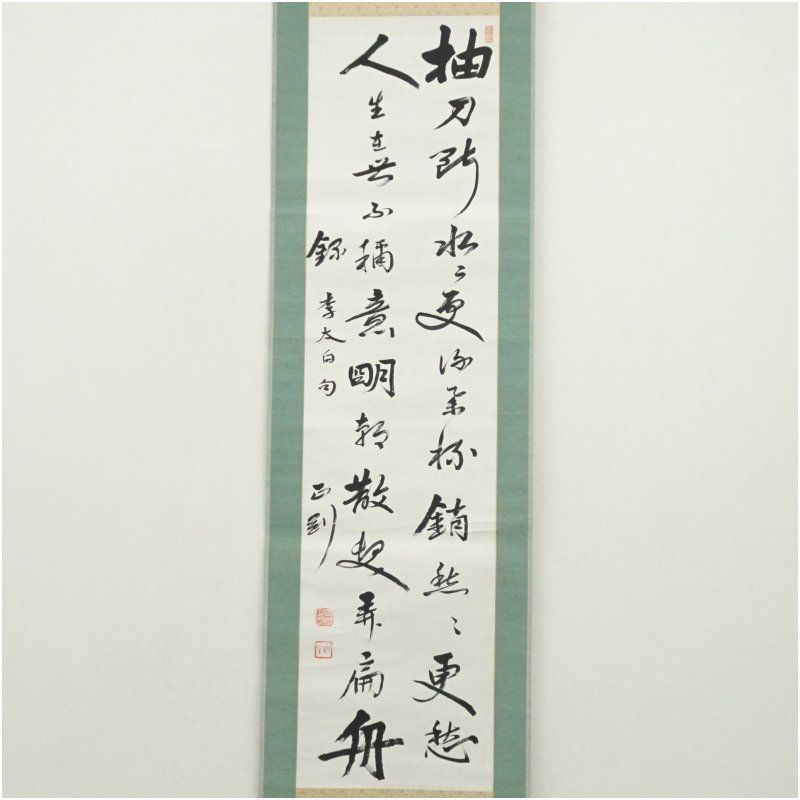 抽刀斷水〻更流舉杯銷愁〻更愁
人生在世不稱意明朝散髮弄扁舟
錄李太白句 正剛